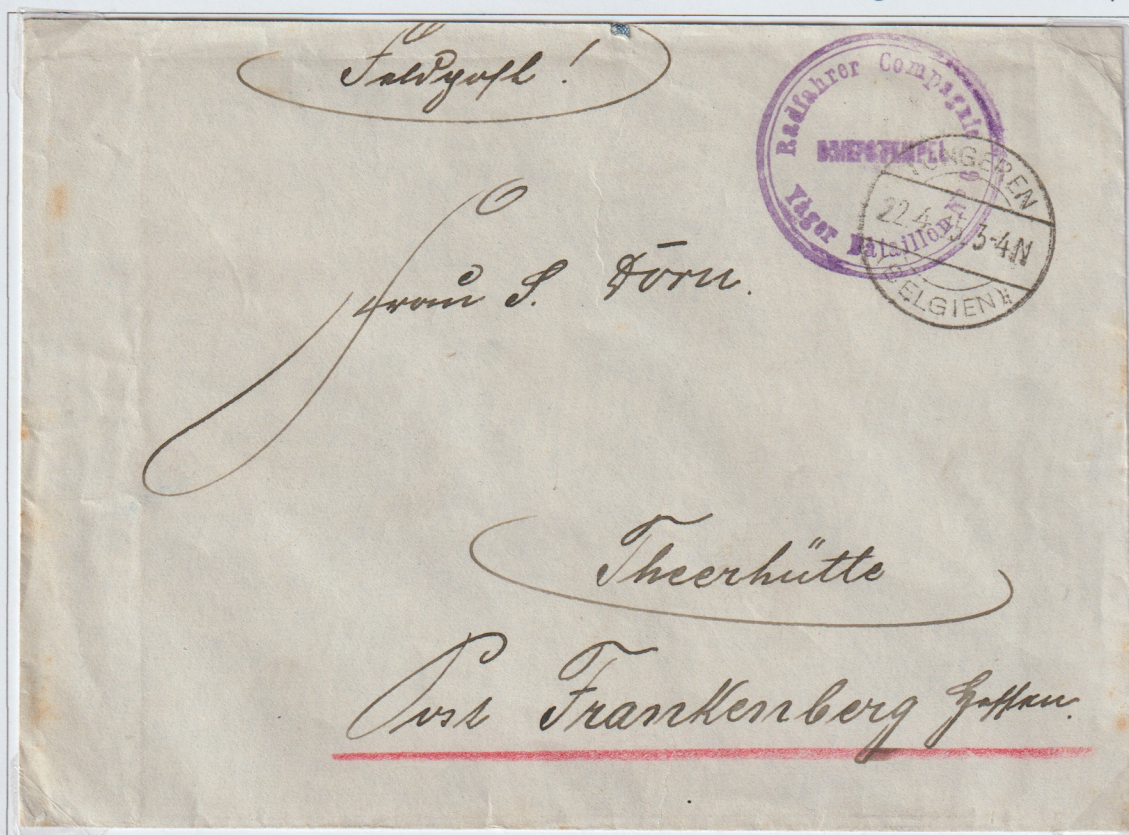 Feldpost!
Radfahrer Compagnie
BRIEFSTEMPEL
Jäger Bataillon No 9
TONGEREN
22.4. 3-4N
(BELGIEN)
Frau S. Dörn.
Theerhütte
Post Frankenberg Hessen.